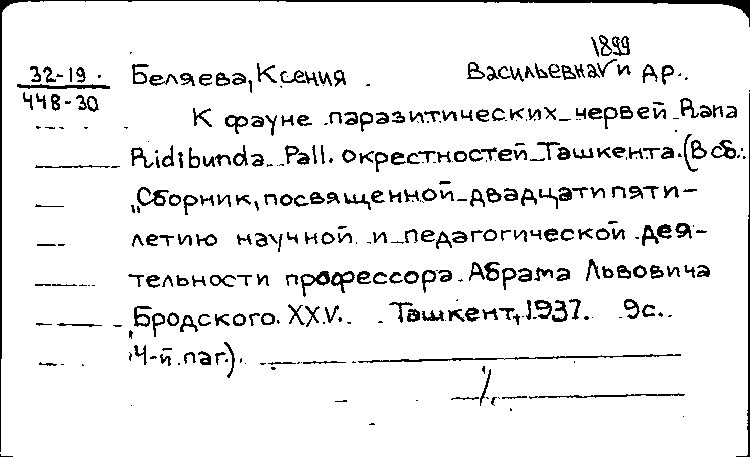 1899
32-19. Беляева, Ксения Васильевна и др.
448-30
К фауне паразитических червей Rana
Ridibunda Pall. окрестностей Ташкента. (В сб.:
„Сборник, посвященной двадцатипяти-
летию научной и педагогической дея-
тельности профессора Абрама Львовича
Бродского. XXV. Ташкент, 1937. 9с.
4-й паг.).